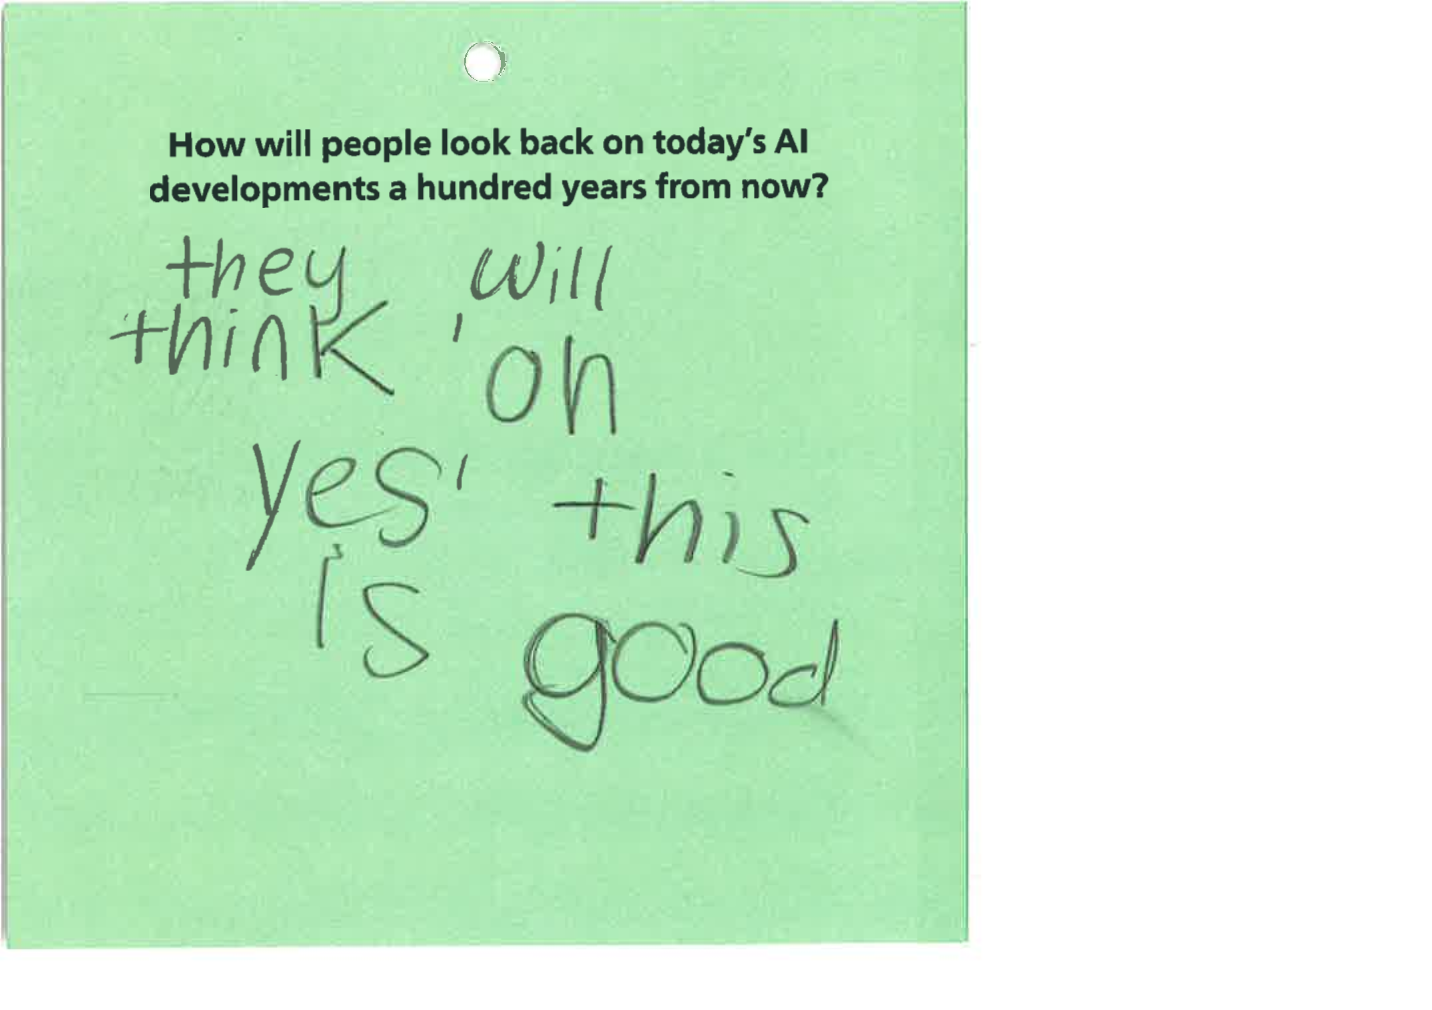 How will people look back on today's AI
developments a hundred years from now?
they will
think 'oh
yes' this
is good